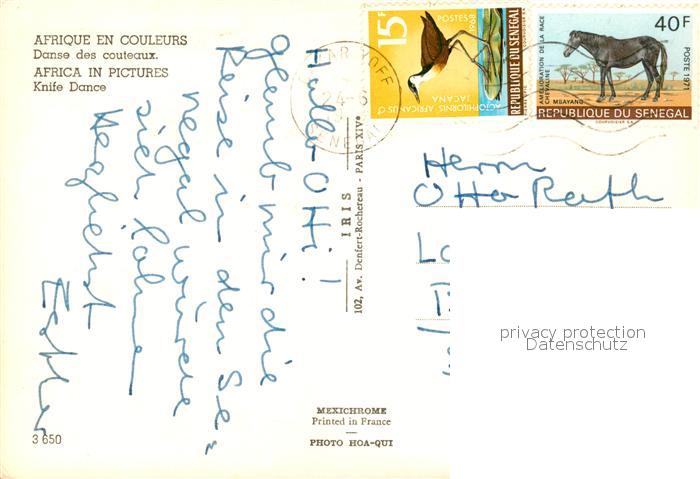 AFRIQUE EN COULEURS
Danse des couteaux.
AFRICA IN PICTURES
Knife Dance
Hallo Otti!
glaub mir die
Reise in den Se-
negal würde
sich lohnen
Herrn
Otto Rath
IRIS
102, Av. Denfert-Rochereau - PARIS-XIVe
15F
POSTES
1968
ACTOPHILORNIS AFRICANUS ♂
JACANA
REPUBLIQUE DU SENEGAL
40F
AMÉLIORATION DE LA RACE
CHEVALINE
MBAYANG
POSTE 1971
REPUBLIQUE DU SENEGAL
privacy protection
Datenschutz
MEXICHROME
Printed in France
PHOTO HOA-QUI
3 650